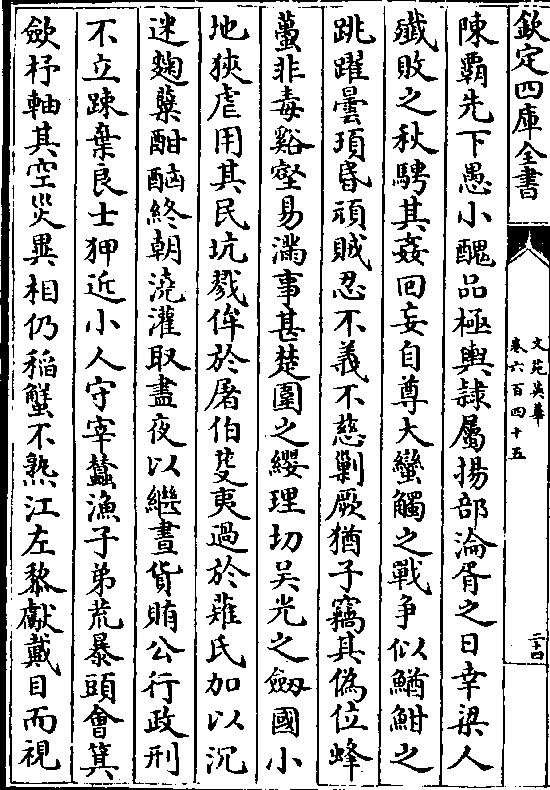 欽定四庫全書
文苑英華
卷六百四十五
二十四
陳霸先下愚小醜品極輿隸屬揚部淪胥之日幸梁人
殲敗之秋騁其姦回妄自尊大蠻觸之戰爭似鰌鮒之
跳躍曇頊昏頑賊忍不義不慈剿厥猶子竊其偽位蜂
蠆非毒谿壑易滿事甚楚圍之纓理切吳光之劔國小
地狹虐用其民坑戮侔於屠伯芟夷過於薙氏加以沉
迷麴糵酣酗終朝澆灌取盡夜以繼晝貨賄公行政刑
不立踈棄良士狎近小人守宰蠶漁子弟荒暴頭會箕
歛杼軸其空災異相仍稻蟹不熟江左黎獻戴目而視